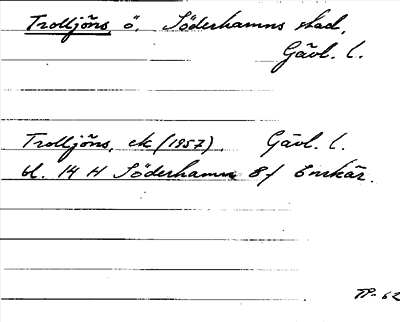 Trolljöns, ö. Söderhamns stad,
Gävl. l.
Trolljöns, ek (1957). Gävl. l.
bl. 14 H Söderhamn 8f Enskär.
TP-62